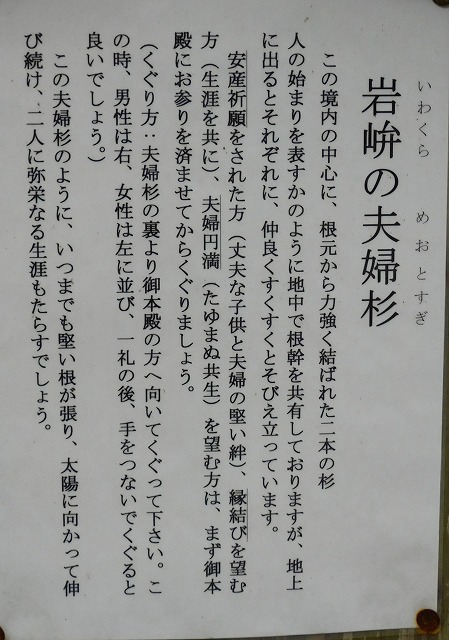 いわくら　めおとすぎ
岩峅の夫婦杉
この境内の中心に、根元から力強く結ばれた二本の杉
人の始まりを表すかのように地中で根幹を共有しておりますが、地上
に出るとそれぞれに、仲良くすくすくとそびえ立っています。
安産祈願をされた方（丈夫な子供と夫婦の堅い絆）、縁結びを望む
方（生涯を共に）、夫婦円満（たゆまぬ共生）を望む方は、まず御本
殿にお参りを済ませてからくぐりましょう。
（くぐり方：夫婦杉の裏より御本殿の方へ向いてくぐって下さい。こ
の時、男性は右、女性は左に並び、一礼の後、手をつないでくぐると
良いでしょう。）
この夫婦杉のように、いつまでも堅い根が張り、太陽に向かって伸
び続け、二人に弥栄なる生涯もたらすでしょう。